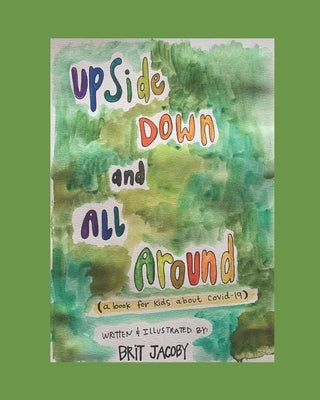 Upside
DOWN
and
ALL
Around
(a book for kids about Covid-19)
WRITTEN & ILLUSTRATED BY:
BRIT JACOBY